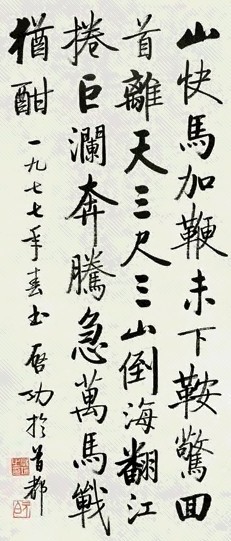 山快馬加鞭未下鞍驚回
首離天三尺三山倒海翻江
捲巨瀾奔騰急萬馬戰
猶酣一九七七年春書啓功於首都